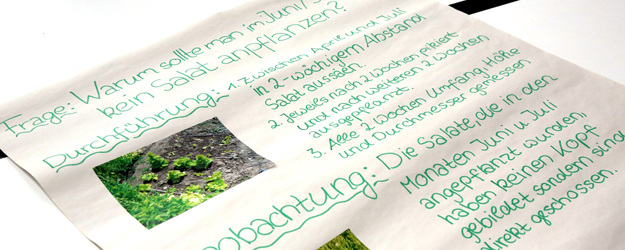 Frage: Warum sollte man im Juni/
kein Salat anpflanzen?
Durchführung: 1. Zwischen April und Juli
in 2-wöchigem Abstand
Salat aussäen.
2. Jeweils nach 2 Wochen pikiert
und nach weiteren 2 Wochen
ausgepflanzt.
3. Alle 2 Wochen Umfang, Höhe
und Durchmesser gemessen
obachtung: Die Salate, die in den
Monaten Juni u. Juli
angepflanzt wurden,
haben keinen Kopf
gebildet sondern sind
direkt geschossen.